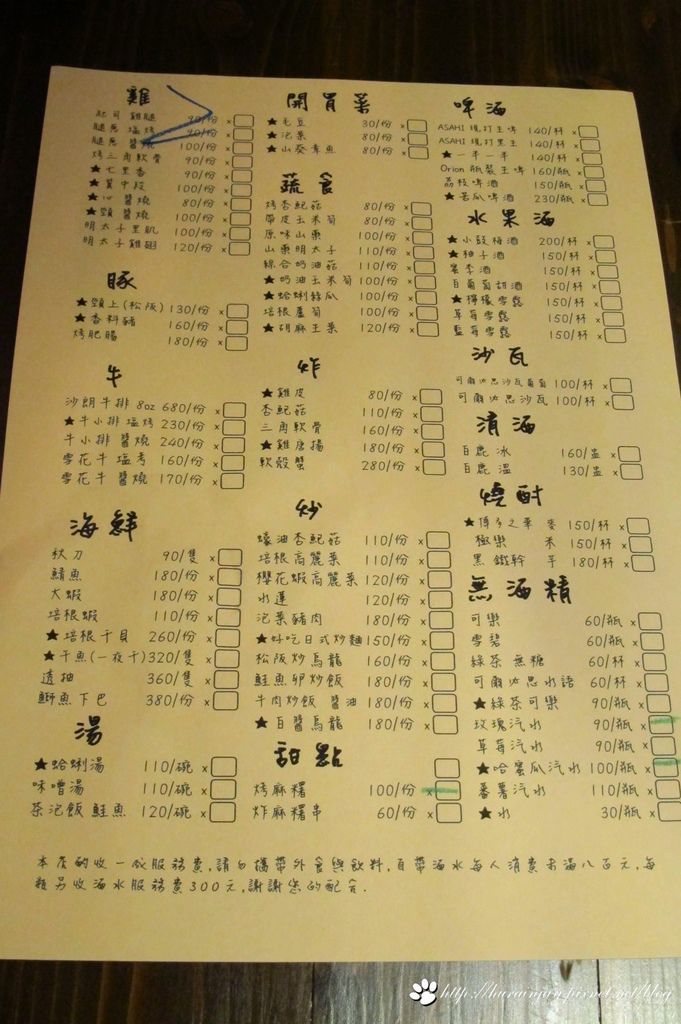 雞
起司雞腿 90/份 x
腿蔥塩烤 90/份 x
腿蔥醬燒 100/份 x
烤三角軟骨 90/份 x
★七里香 90/份 x
★翼中段 100/份 x
★心醬燒 80/份 x
★頸醬燒 100/份 x
明太子里肌 100/份 x
明太子雞翅 120/份 x
豚
★頸上(松阪) 130/份 x
★香料豬 160/份 x
烤肥腸 180/份 x
牛
沙朗牛排 8oz 680/份 x
★牛小排塩烤 230/份 x
牛小排醬燒 240/份 x
雪花牛塩考 160/份 x
雪花牛醬燒 170/份 x
海鮮
秋刀 90/隻 x
鯖魚 180/份 x
大蝦 180/份 x
培根蝦 110/份 x
★培根干貝 260/份 x
★干魚(一夜干) 320/隻 x
透抽 360/隻 x
鰤魚下巴 380/份 x
湯
★蛤蜊湯 110/碗 x
味噌湯 110/碗 x
茶泡飯 鮭魚 120/碗 x
開胃菜
★毛豆 30/份 x
★泡菜 80/份 x
★山葵章魚 80/份 x
蔬食
烤杏鮑菇 80/份 x
帶皮玉米筍 80/份 x
原味山藥 100/份 x
山藥明太子 110/份 x
綜合奶油菇 110/份 x
★奶油玉米筍 100/份 x
★蛤蜊絲瓜 100/份 x
培根蘆筍 100/份 x
★胡麻王菜 120/份 x
炸
★雞皮 80/份 x
杏鮑菇 110/份 x
三角軟骨 160/份 x
★雞唐揚 180/份 x
軟殼蟹 280/份 x
炒
蠔油杏鮑菇 110/份 x
培根高麗菜 110/份 x
櫻花蝦高麗菜 120/份 x
水蓮 120/份 x
泡菜豬肉 180/份 x
★好吃日式炒麵 150/份 x
松阪炒烏龍 160/份 x
鮭魚卵炒飯 180/份 x
牛肉炒飯 醬油 180/份 x
★白醬烏龍 180/份 x
甜點
烤麻糬 100/份 x
炸麻糬串 60/份 x
啤酒
ASAHI 現打生啤 140/杯 x
ASAHI 現打黑生 140/杯 x
★一半一半 140/杯 x
Orion 瓶裝生啤 160/瓶 x
荔枝啤酒 150/瓶 x
★苦瓜啤酒 230/瓶 x
水果酒
★小鼓梅酒 200/杯 x
★柚子酒 150/杯 x
蜜李酒 150/杯 x
白葡萄甜酒 150/杯 x
★檸檬雪露 150/杯 x
草莓雪露 150/杯 x
藍莓雪露 150/杯 x
沙瓦
可爾必思沙瓦葡萄 100/杯 x
可爾必思沙瓦 100/杯 x
清酒
白鹿 冰 160/盅 x
白鹿 溫 130/盅 x
燒酎
★博多之華 麥 150/杯 x
極樂 米 150/杯 x
黑鐵幹 芋 180/杯 x
無酒精
可樂 60/瓶 x
雪碧 60/瓶 x
綠茶 無糖 60/杯 x
可爾必思水語 60/杯 x
★綠茶可樂 90/瓶 x
玫瑰汽水 90/瓶 x
草莓汽水 90/瓶 x
★哈蜜瓜汽水 100/瓶 x
蕃薯汽水 110/瓶 x
★水 30/瓶 x
本店酌收一成服務費,請勿攜帶外食與飲料,自帶酒水每人消費未滿八百元,每
瓶另收酒水服務費300元,謝謝您的配合.